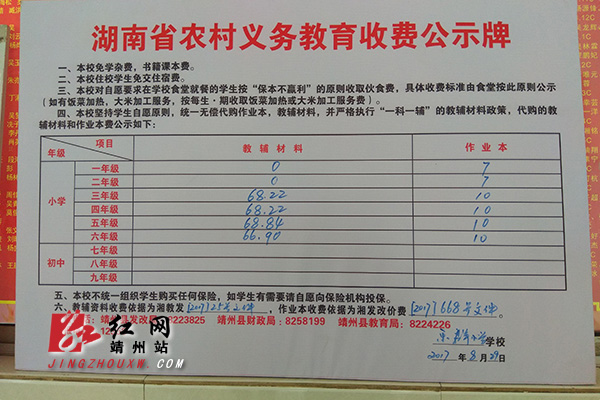 湖南省农村义务教育收费公示牌
一、本校免学杂费，书籍课本费。
二、本校住校学生免交住宿费。
三、本校对自愿要求在学校食堂就餐的学生按“保本不赢利”的原则收取伙食费，具体收费标准由食堂按此原则公示
（如有饭菜加热，大米加工服务，按每生·期收取饭菜加热或大米加工服务费）。
四、本校坚持学生自愿原则，统一无偿代购作业本，教辅材料，并严格执行“一科一辅”的教辅材料政策，代购的教
辅材料和作业本费公示如下：
年级 项目 教辅材料 作业本
小学 一年级 0 7
二年级 0 7
三年级 68.22 10
四年级 68.22 10
五年级 68.84 10
六年级 66.90 10
初中 七年级
八年级
九年级
五、本校不统一组织学生购买任何保险，如学生有需要请自愿向保险机构投保。
六、教辅资料收费依据为湘教发[2017]25号文件，作业本收费依据为湘发改价费[2017]668号文件
靖州县发改局：8223825 靖州县财政局：8258199 靖州县教育局：8224226
学校
2017年8月29日
红网
靖州站
JINGZHOUXW.COM